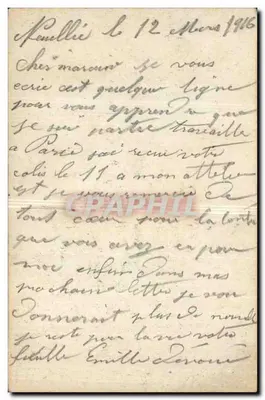 Neuillé le 12 Mars 1916
Cher marraine je vous
écrie cest quelque ligne
pour vous apprendre que
je sui partie travaille
a Paris jai recue votre
colis le 11 a mon attelier
est je vous remercie de
tout cœur pour la bonté
que vous avez eu pour
moi enfin dans mas
prochaine lettre je vous
donnerait plus de nouvelle
je reste pour la vie votre
filulle Emille
CRAPHU